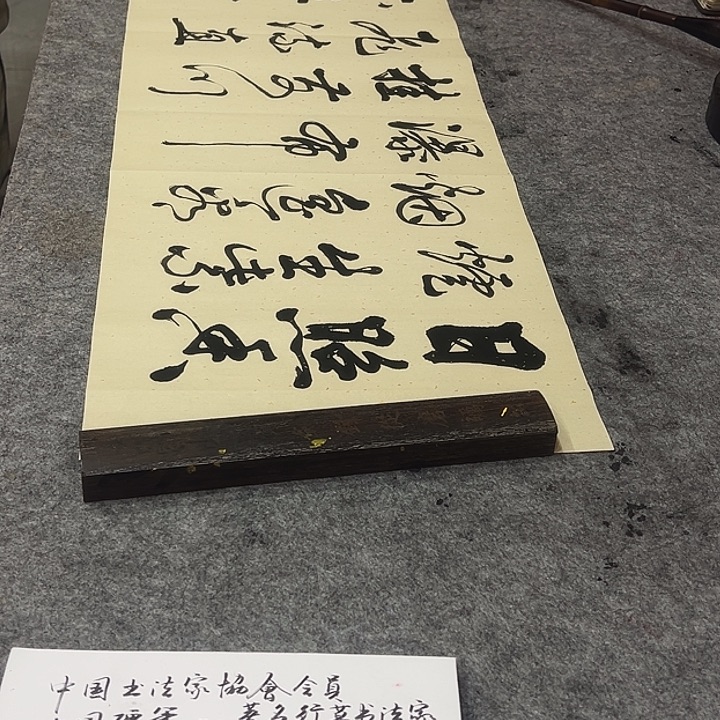 日照香
爐生紫
烟遥看
瀑布
挂前川
飛流直
中国书法家協會会員
著名行草书法家